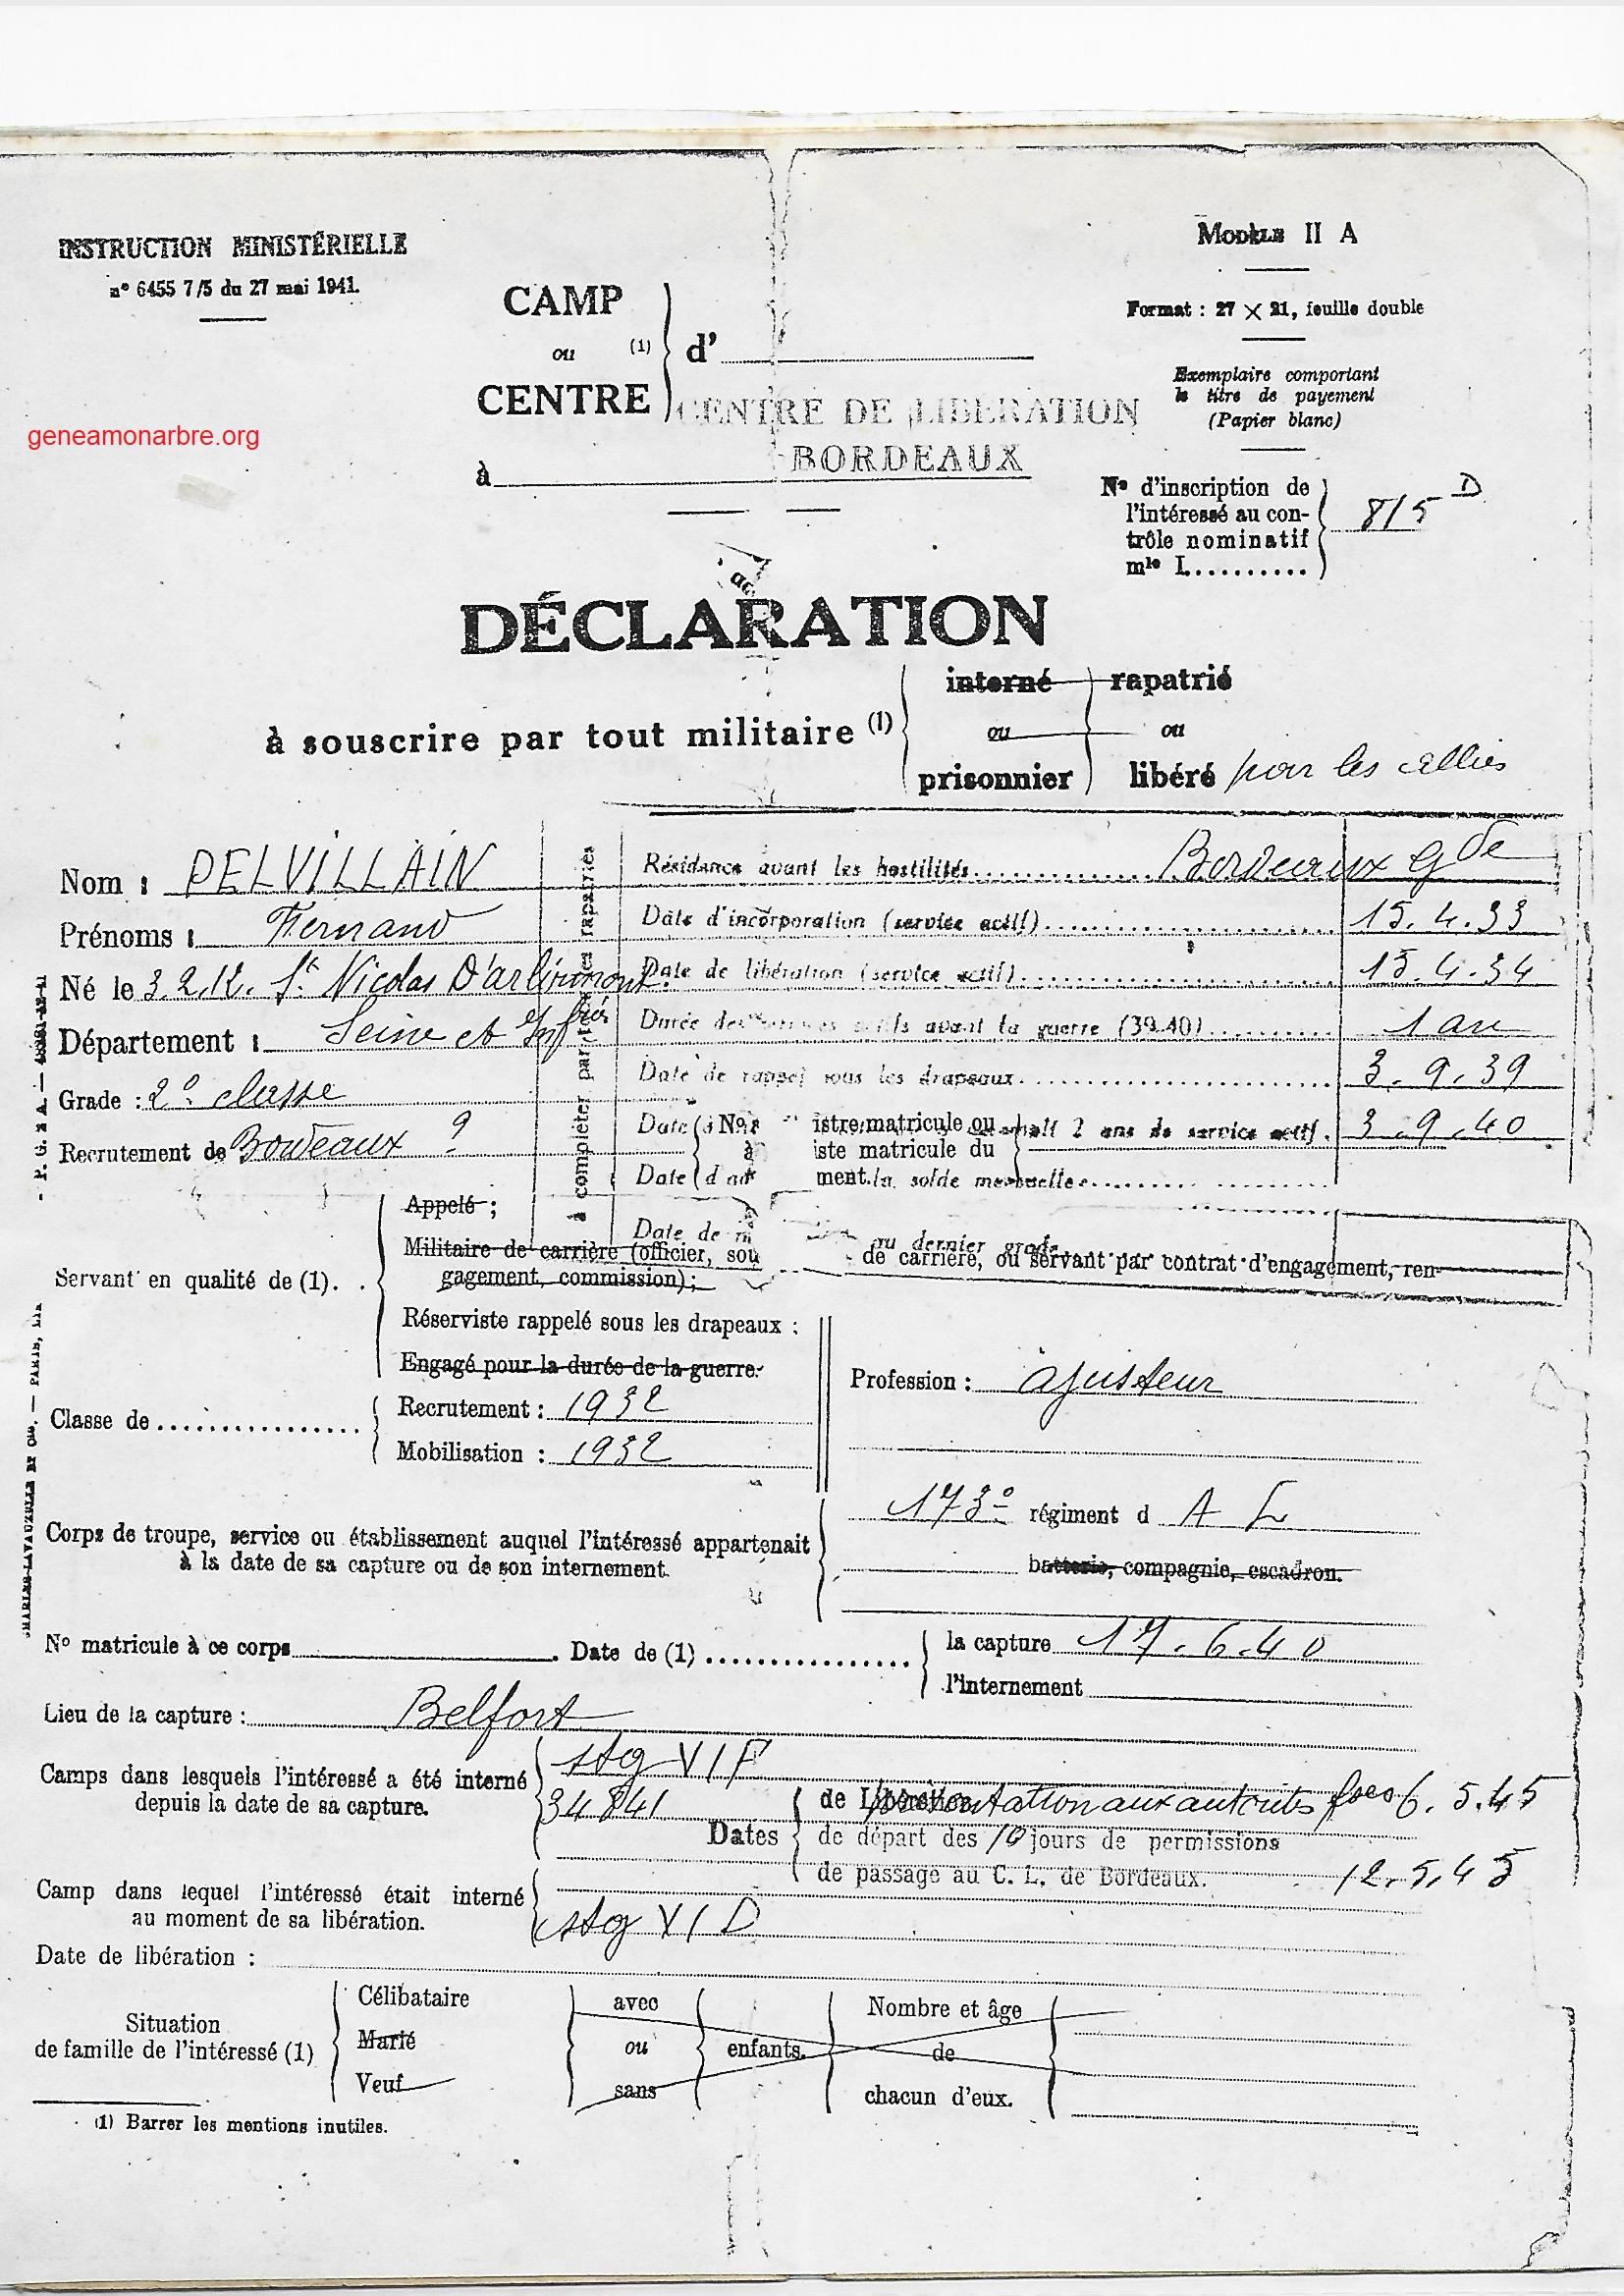 INSTRUCTION MINISTÉRIELLE
n° 6455 7/5 du 27 mai 1941.
MODÈLE II A
Format : 27 × 21, feuille double
Exemplaire comportant
le titre de payement
(Papier blanc)
CAMP
ou (1)
CENTRE
d'
CENTRE DE LIBERATION
BORDEAUX
à
geneamonarbre.org
N° d'inscription de
l'intéressé au con-
trôle nominatif
mle I..........
815 D
DÉCLARATION
à souscrire par tout militaire (1)
interné
ou
prisonnier
rapatrié
ou
libéré par les alliés
Nom : DELVILLAIN
Prénoms : Fernand
Né le 3.2.12. St Nicolas D'
Département : Seine et Infre
Grade : 2e classe
Recrutement de Bordeaux ?
à compléter par les rapatriés
Résidence avant les hostilités Bordeaux Gde
Date d'incorporation (service actif) 15.4.33
Date de libération (service actif) 15.4.34
Durée des services actifs avant la guerre (39-40) 1 an
Date de rappel sous les drapeaux 3.9.39
Date 2 ans de service actif. 3.9.40
Date la solde mensuelle
Date de au dernier grade
N° istre matricule ou
à iste matricule du
ment.
Servant en qualité de (1). .
Appelé ;
Militaire de carrière (officier, sou
de carrière, ou servant par contrat d'engagement, ren-
gagement, commission) ;
Réserviste rappelé sous les drapeaux ;
Engagé pour la durée de la guerre.
Classe de
Recrutement : 1932
Mobilisation : 1932
Profession : ajusteur
Corps de troupe, service ou établissement auquel l'intéressé appartenait
à la date de sa capture ou de son internement.
173e régiment d A L
batterie, compagnie, escadron.
N° matricule à ce corps
Date de (1)
la capture 17.6.40
l'internement
Lieu de la capture : Belfort
Camps dans lesquels l'intéressé a été interné
depuis la date de sa capture.
stg VI F
34841
Dates
de Libération présentation aux autorités fses 6.5.45
de départ des 10 jours de permissions
de passage au C. L. de Bordeaux. 12.5.45
Camp dans lequel l'intéressé était interné
au moment de sa libération.
stg VI D
Date de libération :
Situation
de famille de l'intéressé (1)
Célibataire
Marié
Veuf
avec
ou
sans
enfants.
Nombre et âge
de
chacun d'eux.
(1) Barrer les mentions inutiles.